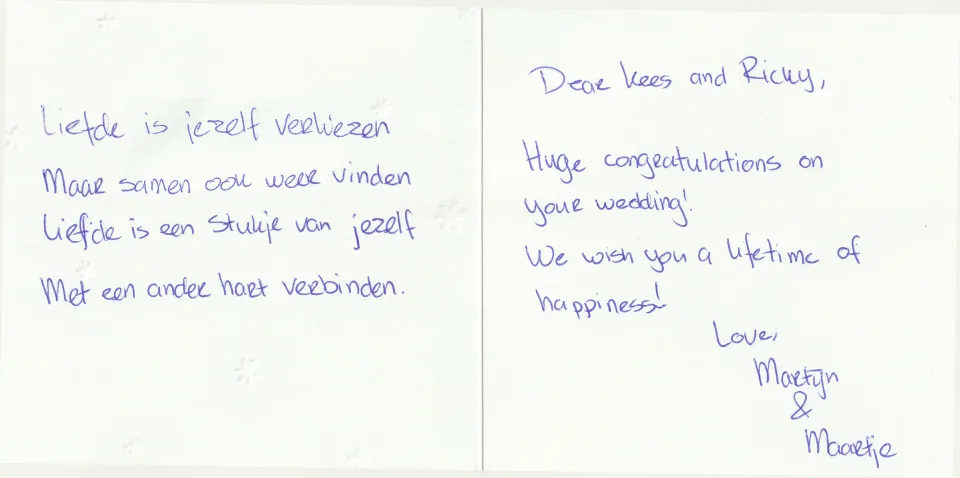 Liefde is jezelf verliezen
Maar samen ook weer vinden
Liefde is een stukje van jezelf
Met een ander hart verbinden.
Dear Kees and Ricky,
Huge congratulations on
your wedding!
We wish you a lifetime of
happiness!
Love,
Martijn
&
Maartje